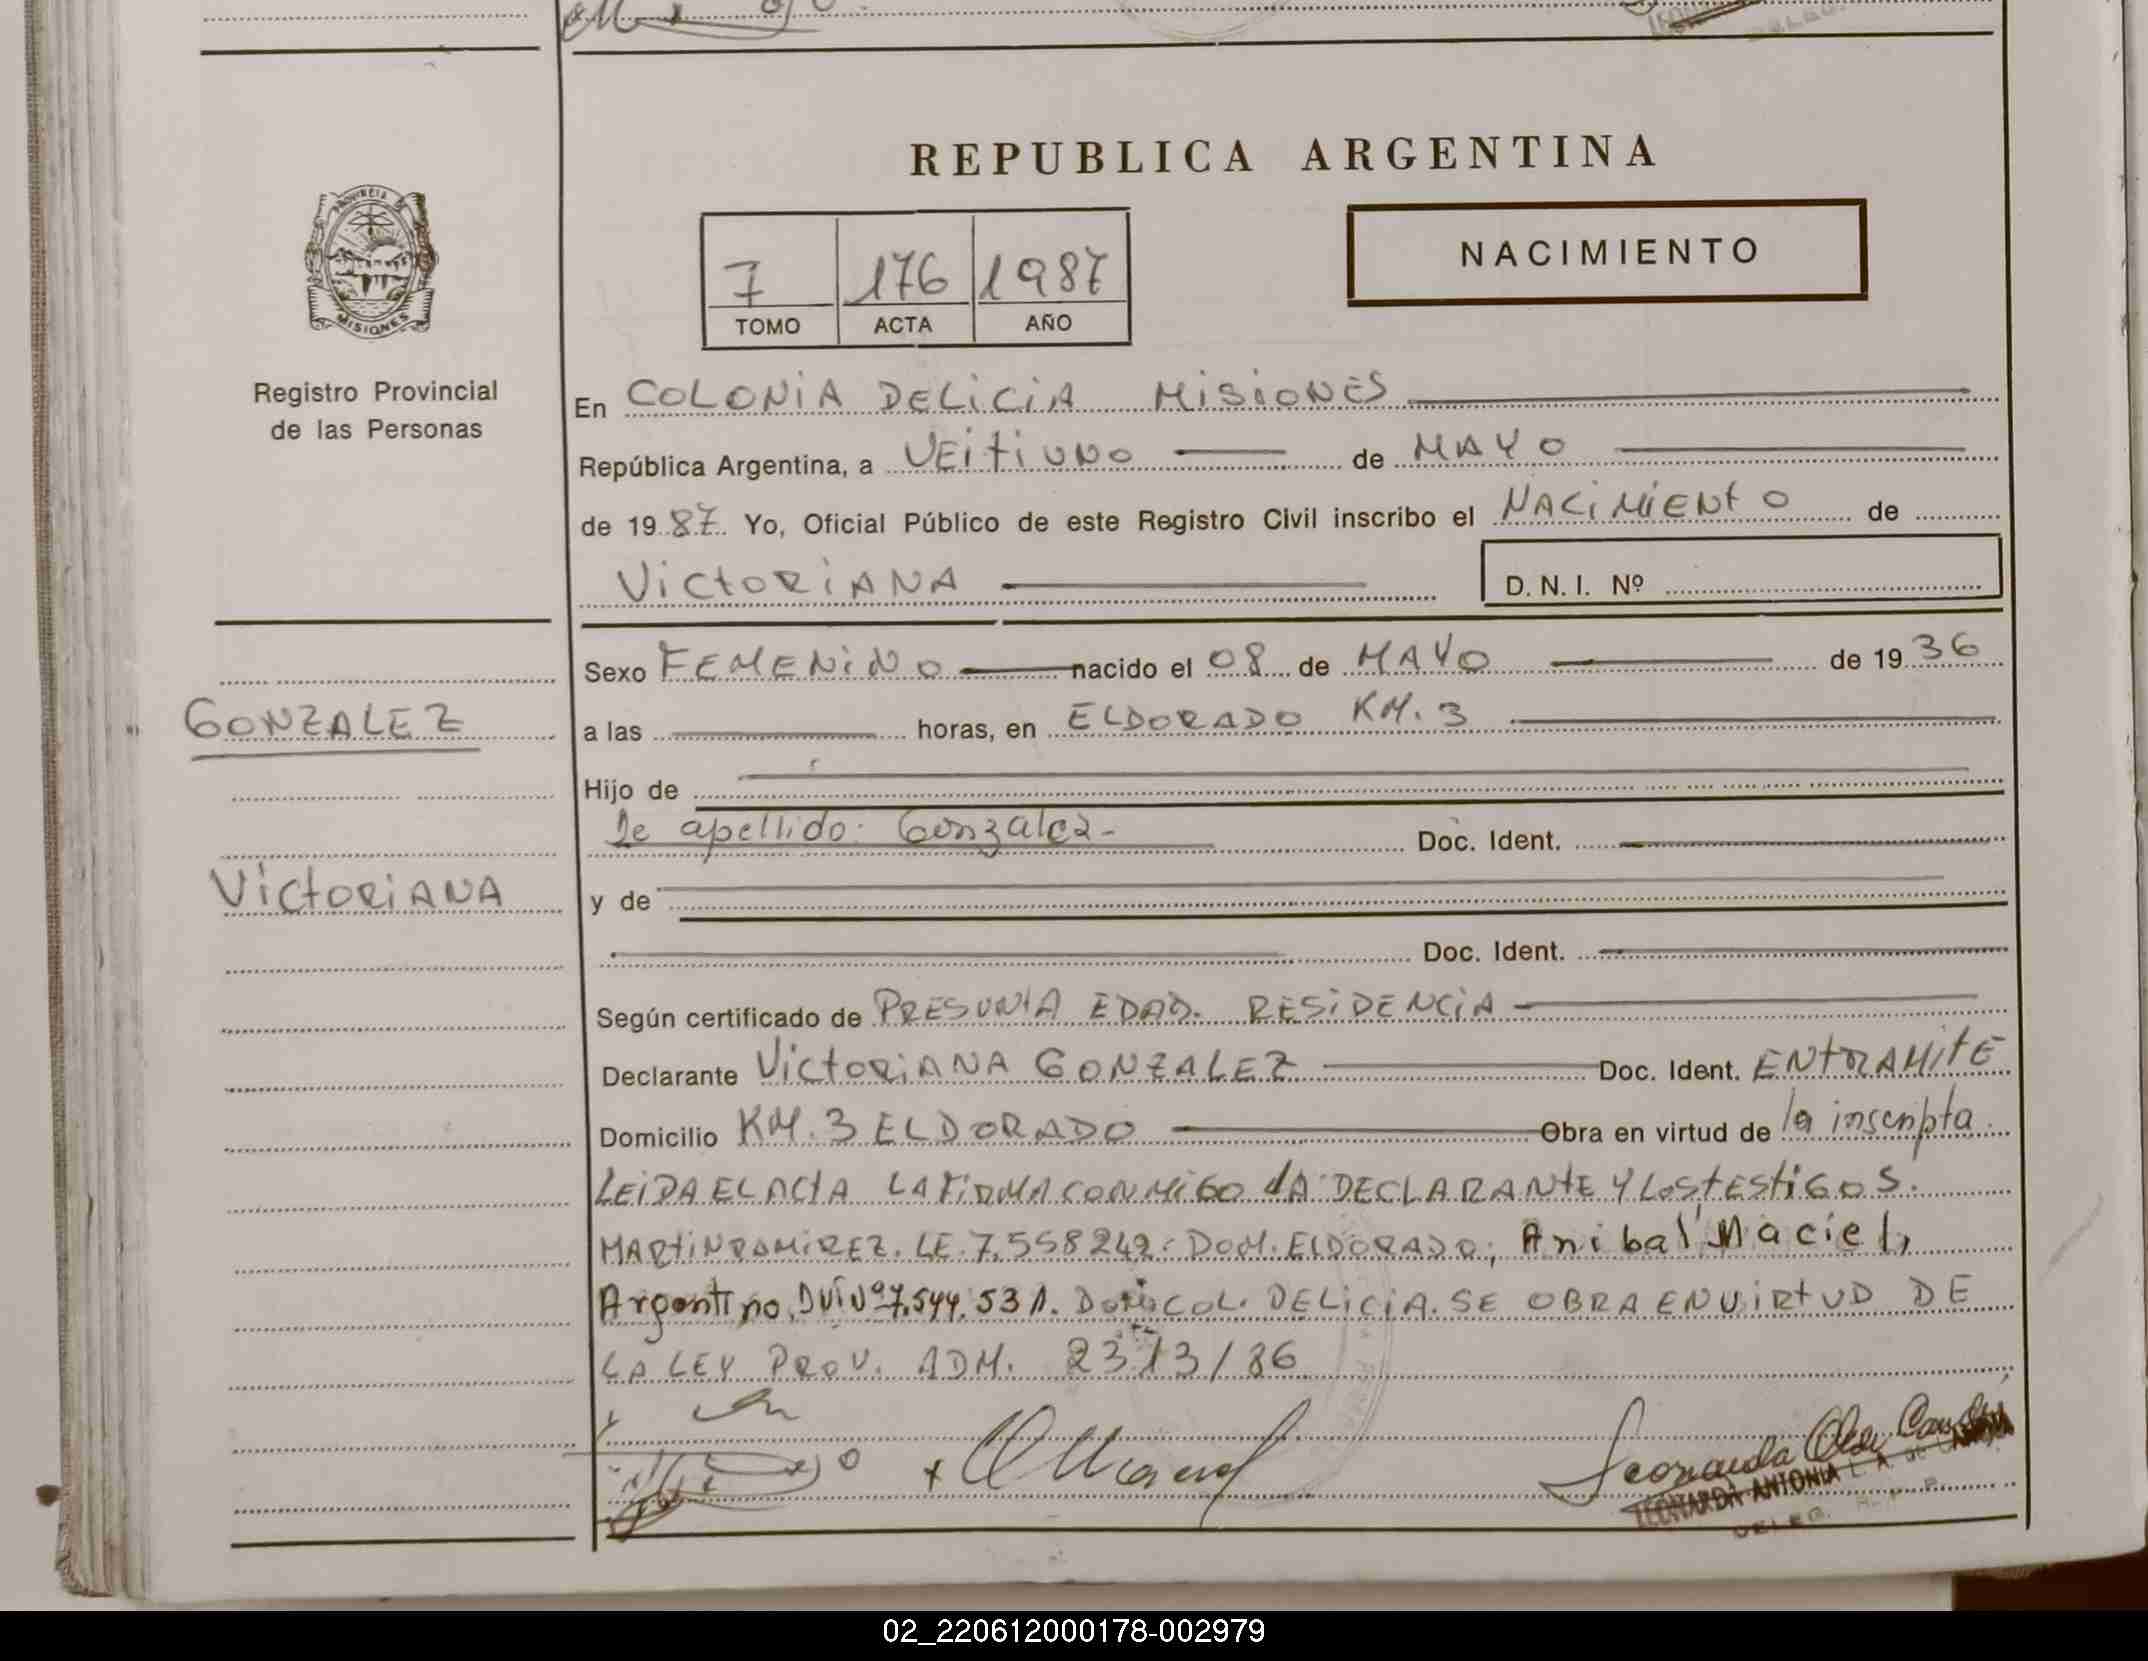 REPUBLICA ARGENTINA
PROVINCIA DE
MISIONES
Registro Provincial
de las Personas
7 176 1987
TOMO ACTA AÑO
NACIMIENTO
En COLONIA DELICIA MISIONES
República Argentina, a VEITIUNO de MAYO
de 1987. Yo, Oficial Público de este Registro Civil inscribo el NACIMIENTO de
VICTORIANA
D. N. I. Nº
Sexo FEMENINO nacido el 08 de MAYO de 1936
GONZALEZ
a las horas, en ELDORADO KM. 3
Hijo de
De apellido: Gonzalez- Doc. Ident.
VICTORIANA
y de
Doc. Ident.
Según certificado de PRESUNTA EDAD. RESIDENCIA
Declarante VICTORIANA GONZALEZ Doc. Ident. ENTRAMITE
Domicilio KM. 3 ELDORADO Obra en virtud de la inscripta
LEIDA EL ACTA LA FIRMA CONMIGO LA DECLARANTE Y LOS TESTIGOS.
MARTIN RAMIREZ. LE. 7.558242. DOM. ELDORADO, Anibal Maciel,
Argentino, DNI Nº 7.544.531. DOMIC COL. DELICIA. SE OBRA EN VIRTUD DE
LA LEY PROV. ADM. 2313/86
Leonarda
LEONARDA ANTONIA
DELEG. R. P. P.
02_220612000178-002979